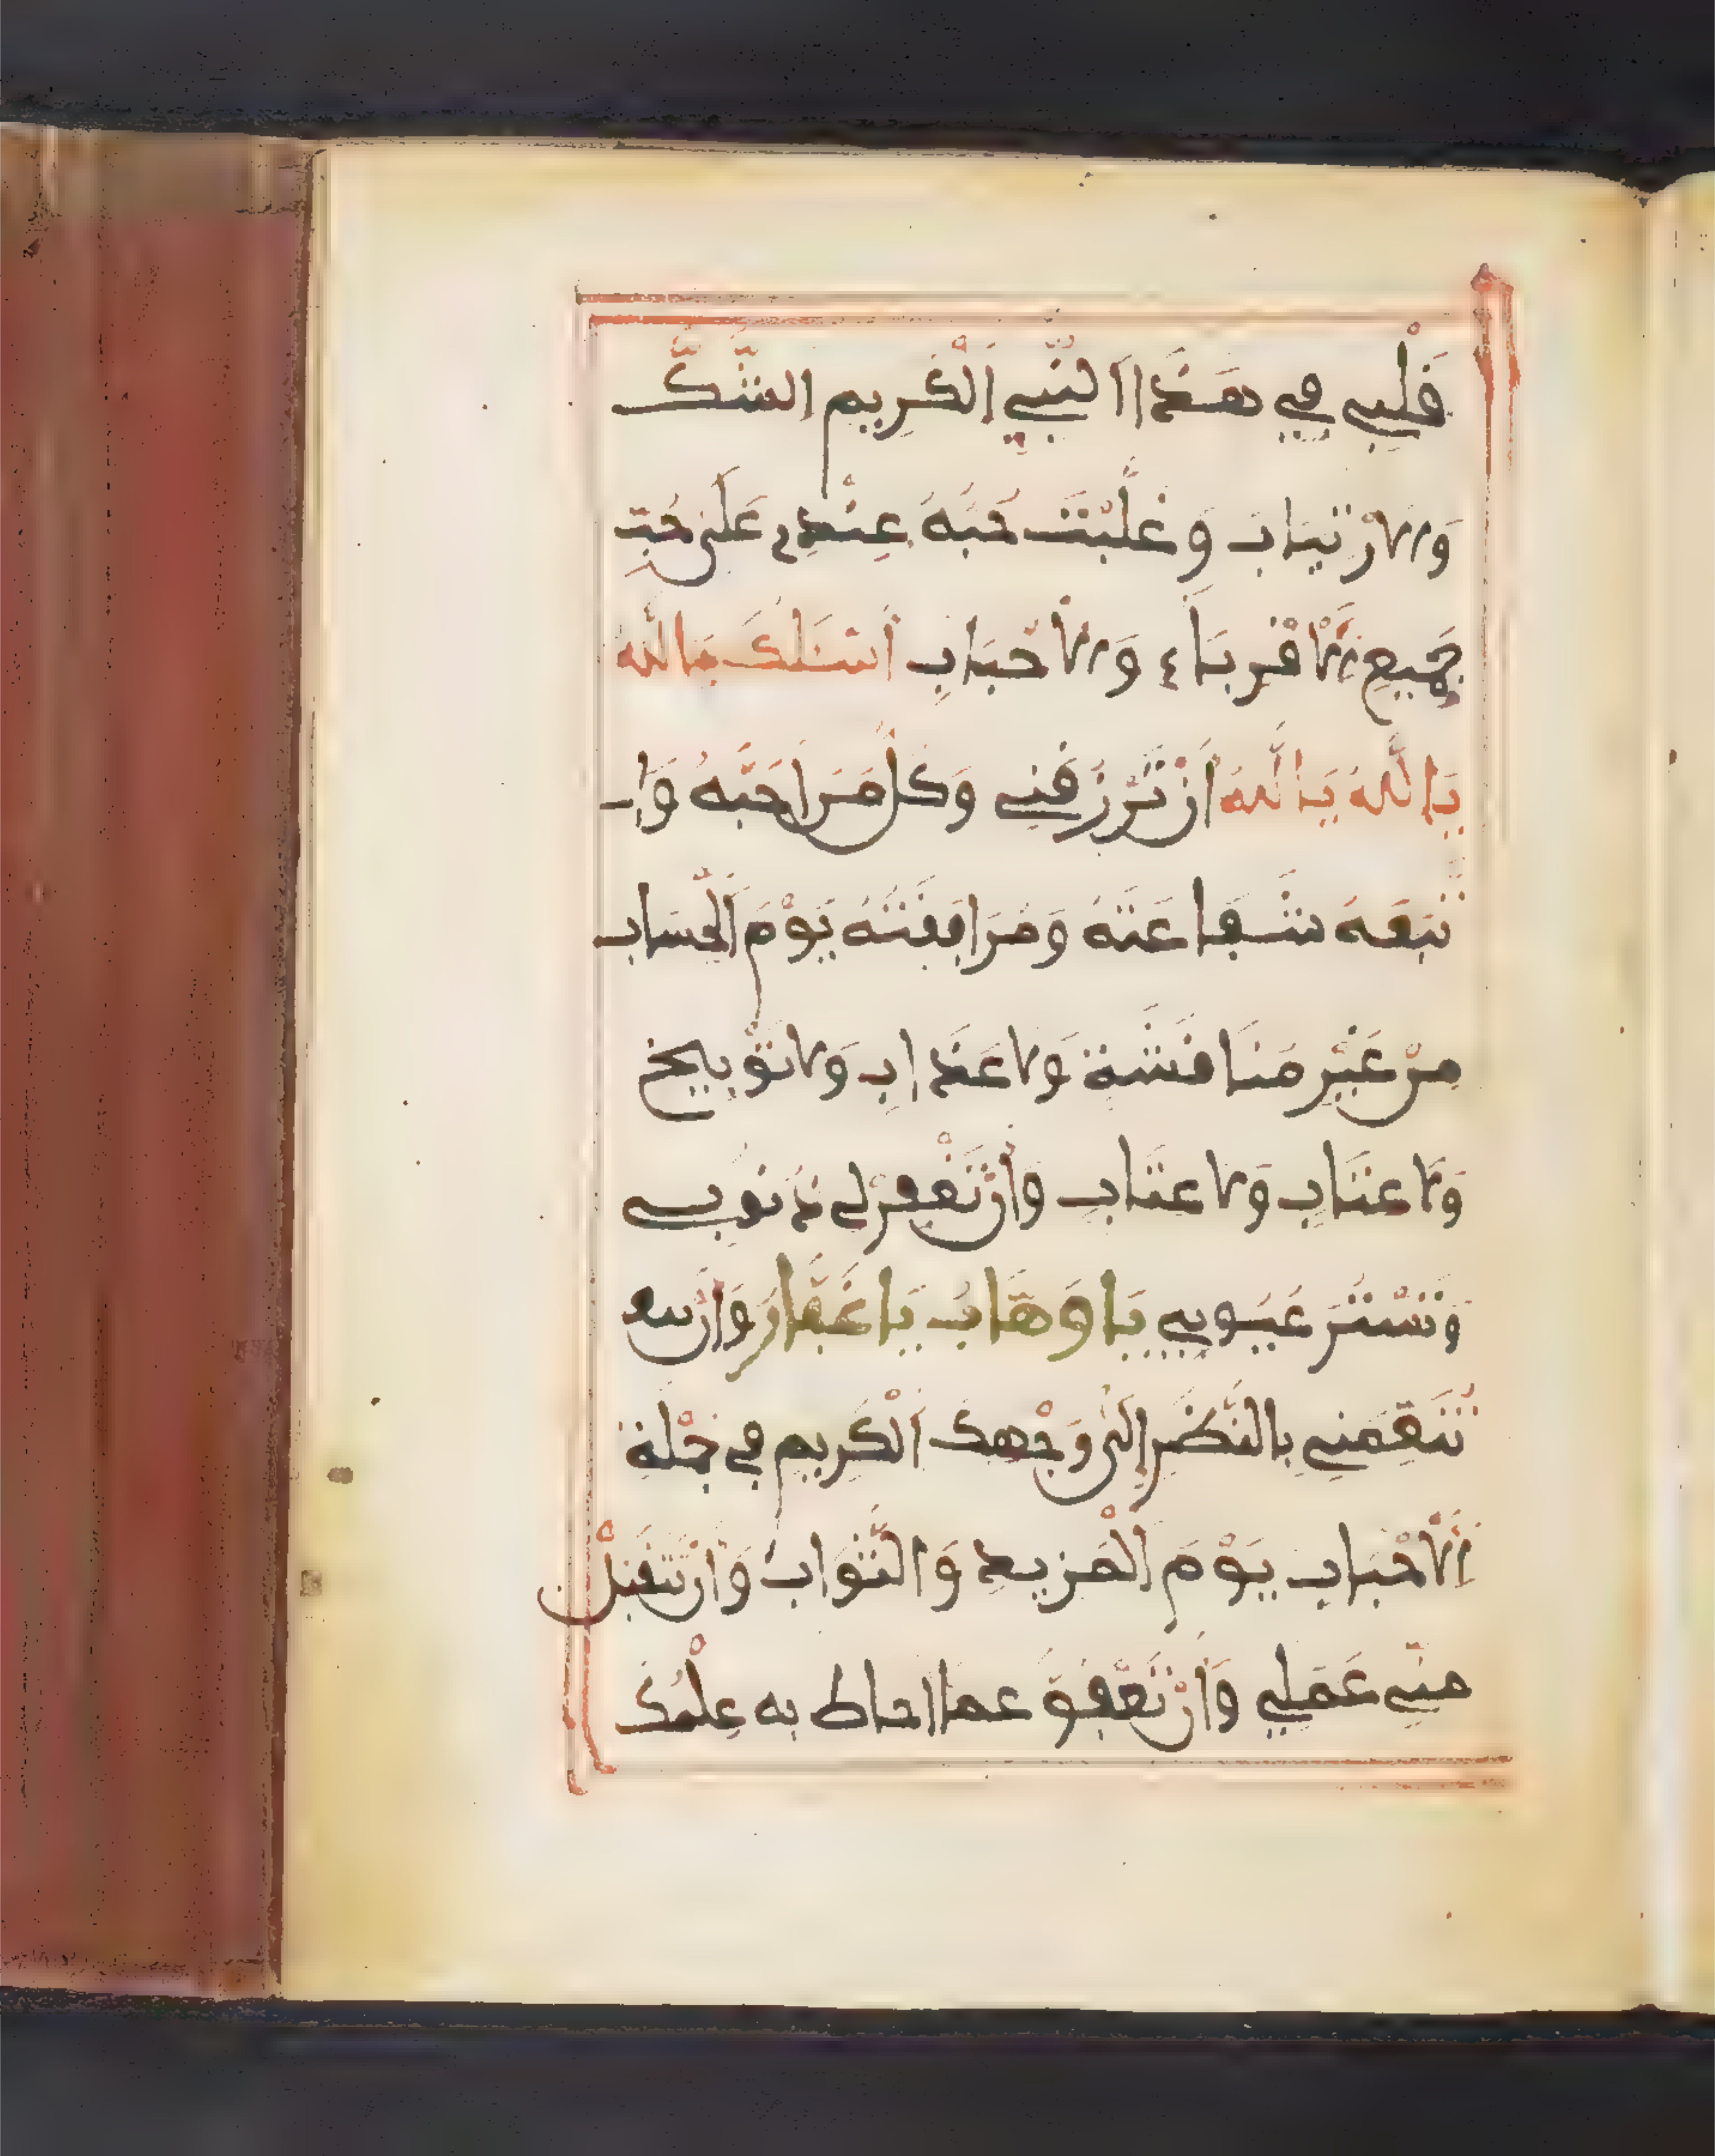 قَلْبِي فِي هَذَا النَّبِيِّ الْكَرِيمِ الشَّكَّ
وَالاِرْتِيَابَ وَغَلَّبْتَ حُبَّهُ عِنْدِي عَلَى حُبِّ
جَمِيعِ الْأَقْرِبَاءِ وَالْأَحْبَابِ أَسْئَلُكَ يَا اللَّهُ
يَا اللَّهُ يَا اللَّهُ أَنْ تَرْزُقَنِي وَكُلَّ مَنْ أَحَبَّهُ وَاـ
تَّبَعَهُ شَفَاعَتَهُ وَمُرَافَقَتَهُ يَوْمَ الْحِسَابِ
مِنْ غَيْرِ مُنَاقَشَةٍ وَلَا عَذَابٍ وَلَا تَوْبِيخٍ
وَلَا عِتَابٍ وَلَا عِتَابٍ وَأَنْ تَغْفِرَ لِي ذُنُوبِي
وَتَسْتُرَ عُيُوبِي يَا وَهَّابُ يَا غَفَّارُ وَأَنْ
تُنَعِّمَنِي بِالنَّظَرِ إِلَى وَجْهِكَ الْكَرِيمِ فِي جُمْلَةِ
الْأَحْبَابِ يَوْمَ الْمَزِيدِ وَالثَّوَابِ وَأَنْ تَتَقَبَّلَ
مِنِّي عَمَلِي وَأَنْ تَعْفُوَ عَمَّا أَحَاطَ بِهِ عِلْمُكَ